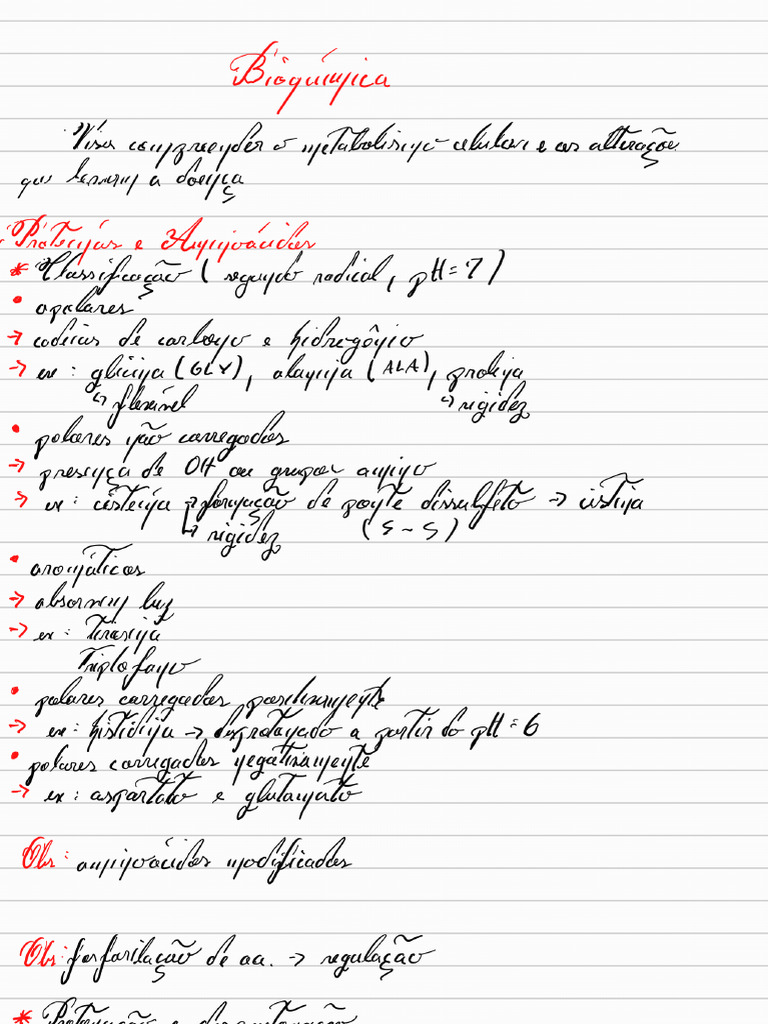 Bioquímica
Visa compreender o metabolismo celular e as alterações
que levam a doença
Proteínas e Aminoácidos
* Classificação (segundo radical, pH = 7)
• apolares
→ cadeias de carbono e hidrogênio
→ ex: glicina (GLY), alanina (ALA), prolina
↳ flexível ↳ rigidez
• polares não carregados
→ presença de OH ou grupos amino
→ ex: cisteína → formação de ponte dissulfeto → cistina
↳ rigidez (S ~ S)
• aromáticos
→ absorvem luz
→ ex: Tirosina
Triptofano
• polares carregados positivamente
→ ex: histidina → desprotonado a partir do pH = 6
• polares carregados negativamente
→ ex: aspartato e glutamato
Obs: aminoácidos modificados
Obs: fosforilação de aa. → regulação
* Protonação e desprotonação